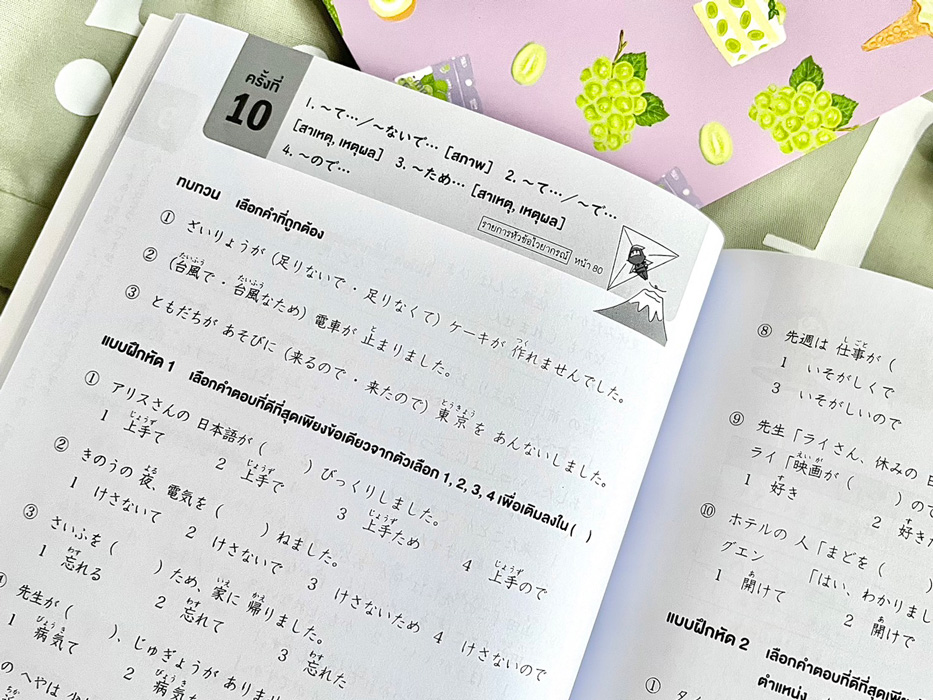 ครั้งที่
10
1. ～て…/～ないで… [สภาพ] 2. ～て…/～で…
[สาเหตุ, เหตุผล] 3. ～ため… [สาเหตุ, เหตุผล]
4. ～ので…
รายการหัวข้อไวยากรณ์ หน้า 80
ทบทวน เลือกคำที่ถูกต้อง
① ざいりょうが (足りないで・足りなくて) ケーキが 作れませんでした。
② (台風で・台風なため) 電車が 止まりました。
③ ともだちが あそびに (来るので・来たので) 東京を あんないしました。
แบบฝึกหัด 1 เลือกคำตอบที่ดีที่สุดเพียงข้อเดียวจากตัวเลือก 1, 2, 3, 4 เพื่อเติมลงใน ( )
① アリスさんの 日本語が ( ) びっくりしました。
1 上手て 2 上手で 3 上手ため 4 上手ので
② きのうの 夜、電気を ( ) ねました。
1 けさないて 2 けさないで 3 けさないため 4 けさないので
③ さいふを ( ) ため、家に 帰りました。
1 忘れる 2 忘れて 3 忘れた
先生が ( )、じゅぎょうが ありま
1 病気て 2 病気
のへやは
⑧ 先週は 仕事が (
1 いそがしくで
3 いそがしいので
⑨ 先生「ライさん、休みの
ライ「映画が ( ) ので
1 好き 2 好き
⑩ ホテルの 人「まどを (
グエン 「はい、わかりまし
1 開けて 2 開けで
แบบฝึกหัด 2 เลือกคำตอบที่ดีที่สุด
ตำแหน่ง
①